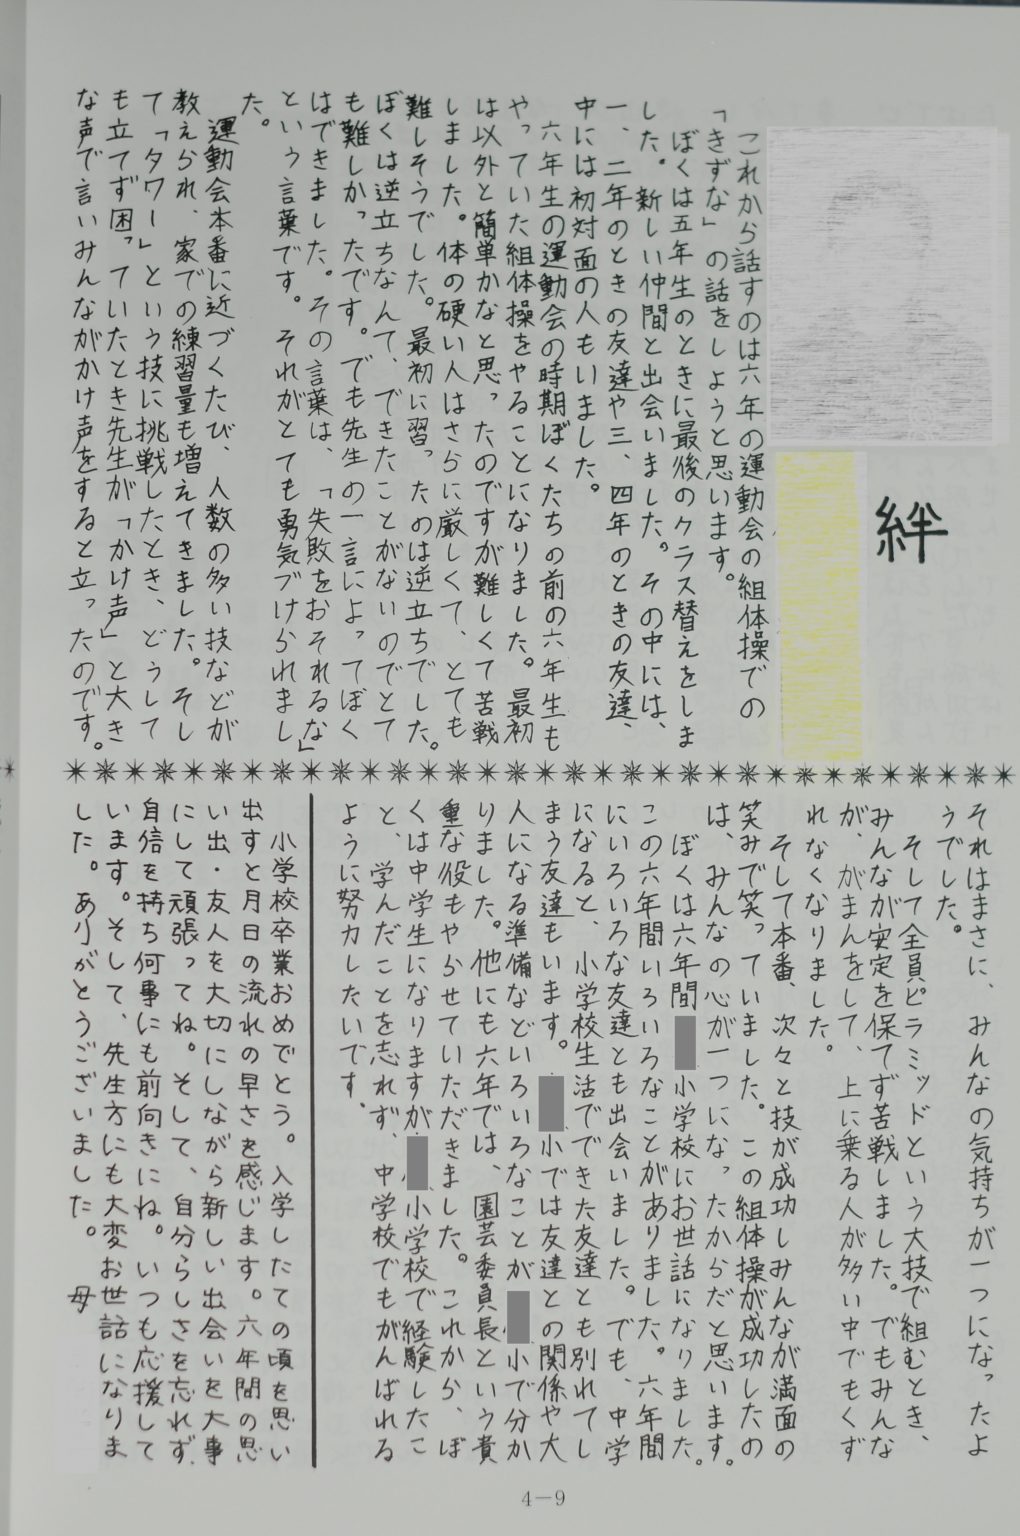 絆
これから話すのは六年の運動会の組体操での
「きずな」の話をしようと思います。
ぼくは五年生のときに最後のクラス替えをしま
した。新しい仲間と出会いました。その中には、
一、二年のときの友達や三、四年のときの友達、
中には初対面の人もいました。
六年生の運動会の時期ぼくたちの前の六年生も
やっていた組体操をやることになりました。最初
は以外と簡単かなと思ったのですが難しくて苦戦
しました。体の硬い人はさらに厳しくて、とても
難しそうでした。最初に習ったのは逆立ちでした。
ぼくは逆立ちなんて、できたことがないのでとて
も難しかったです。でも先生の一言によってぼく
はできました。その言葉は、「失敗をおそれるな」
という言葉です。それがとても勇気づけられまし
た。
運動会本番に近づくたび、人数の多い技などが
教えられ、家での練習量も増えてきました。そし
て「タワー」という技に挑戦したとき、どうして
も立てず困っていたとき先生が「かけ声」と大き
な声で言いみんながかけ声をすると立ったのです。
それはまさに、みんなの気持ちが一つになったよ
うでした。
そして全員ピラミッドという大技で組むとき、
みんなが安定を保てず苦戦しました。でもみんな
が、がまんをして、上に乗る人が多い中でもくず
れなくなりました。
そして本番、次々と技が成功しみんなが満面の
笑みで笑っていました。この組体操が成功したの
は、みんなの心が一つになったからだと思います。
ぼくは六年間小学校にお世話になりました。
この六年間いろいろなことがありました。六年間
にいろいろな友達とも出会いました。でも、中学
になると、小学校生活でできた友達とも別れてし
まう友達もいます。小では友達との関係や大
人になる準備などいろいろなことが小で分か
りました。他にも六年では、園芸委員長という貴
重な役もやらせていただきました。これから、ぼ
くは中学生になりますが、小学校で経験したこ
と、学んだことを忘れず、中学校でもがんばれる
ように努力したいです。
小学校卒業おめでとう。入学したての頃を思い
出すと月日の流れの早さを感じます。六年間の思
い出・友人を大切にしながら新しい出会いを大事
にして頑張ってね。そして、自分らしさを忘れず、
自信を持ち何事にも前向きにね。いつも応援して
います。そして、先生方にも大変お世話になりま
した。ありがとうございました。 母
4−9